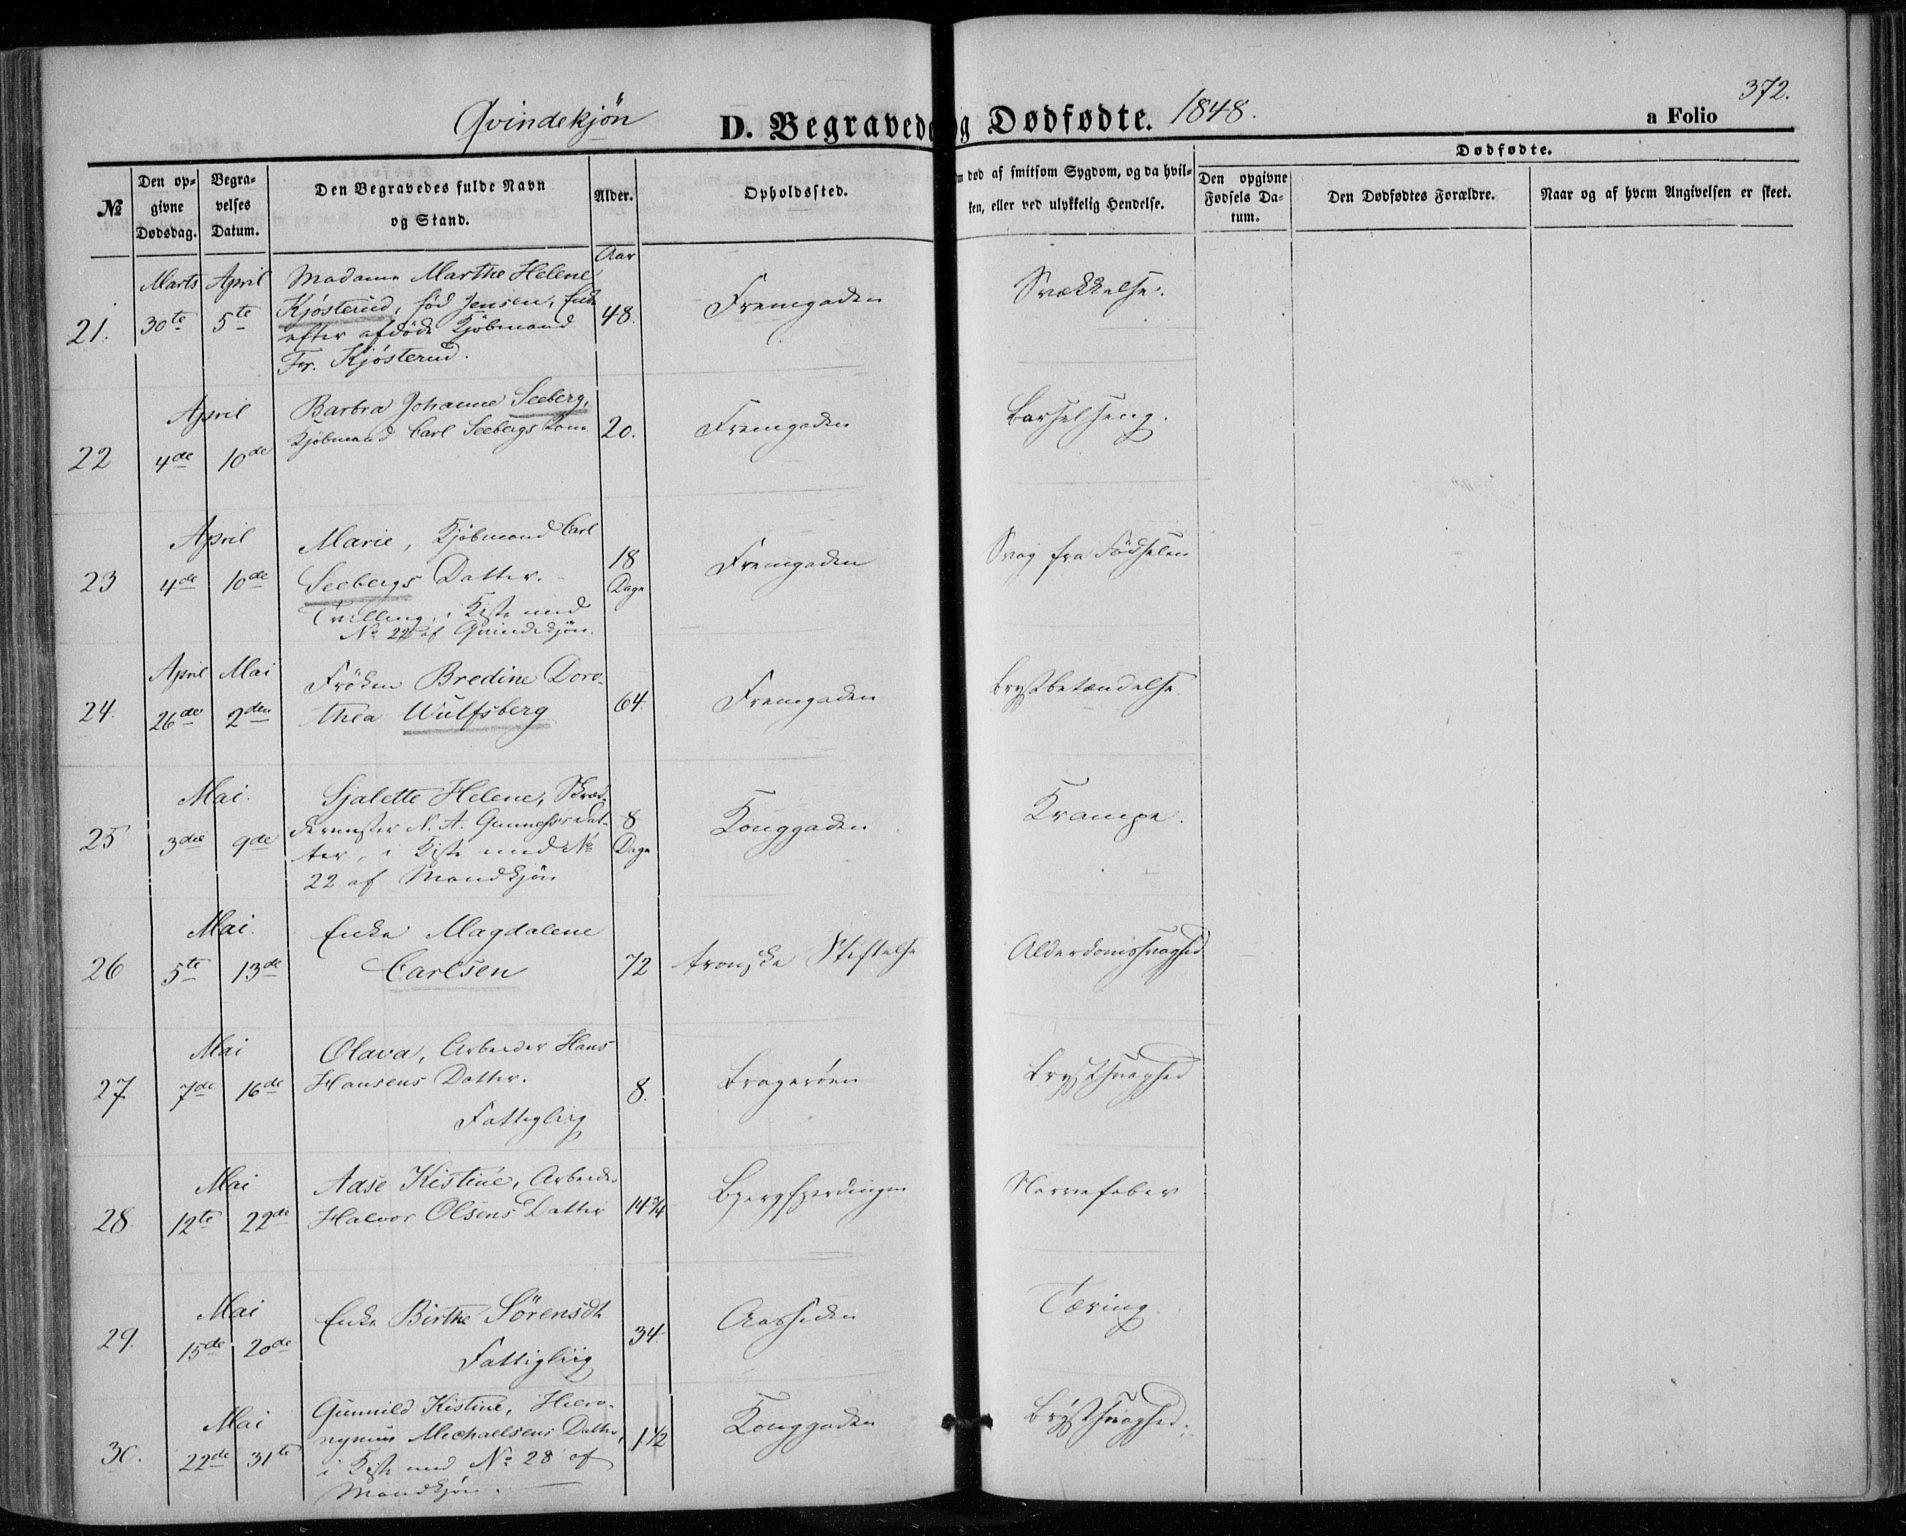 372.
Qvindekjön D. Begravede og Dødfødte. 1848. a Folio
№
Den op-
givne
Dødsdag.
Begra-
velses
Datum.
Den Begravedes fulde Navn
og Stand.
Alder.
Opholdssted.
død af smitsom Sygdom, og da hvil-
ken, eller ved ulykkelig Hendelse.
Dødfødte.
Den opgivne
Fødsels Da-
tum.
Den Dødfødtes Forældre.
Naar og af hvem Angivelsen er skeet.
Aar
21. Marts 30te April 5te
Madame Marthe Helene
Kjøsterud, fød Jensen, Enke
efter afdøde Kjöbmand
Fr. Kjøsterud.
48. Fremgaden Svækkelse.
22 April 4de 10de
Barbra Johanne Seeberg,
Kjøbmand Carl Seebergs Kone
20. Fremgaden Barselseng.
23 April 4de 10de
Marie, Kjøbmand Carl
Seebergs Datter.
Tvilling, i Kiste med
No 22 af Qvindekjøn.
18 Dage Fremgaden Svag fra Fødselen
24. April 26de Mai 2den
Fröken Bredine Doro-
thea Wulfsberg
64. Fremgaden Brystbetændelse.
25 Mai. 3die 9de
Sjalette Helene, Skræd-
dermester N. A. Dat-
ter, i Kiste med No
22 af Mandkjøn
8 Dage Konggaden Krampe.
26 Mai. 5te 13de
Enke Magdalene
Carlsen
72 Stiftelse Alderdomssvaghed
27 Mai 7de 16de
Olava, Arbeider Hans
Hansens Datter.
Fattiglig
8. Bragerøen Brystsvaghed
28 Mai 12te 22de
Aase Kistine, Arbeider
Halvor Olsens Datter
14 3/4 Bergfjerdingen Nervefeber
29. Mai 15de 20de
Enke Birthe Sörensdt
Fattigliig
34. Aassiden Tæring.
30. Mai 22de 31te
Gunnild Kistine, Hiero-
nymus Mechaelsens Datter,
i Kiste med No 28 af
Mandkjøn.
1 1/2 Konggaden Brystsvaghed.